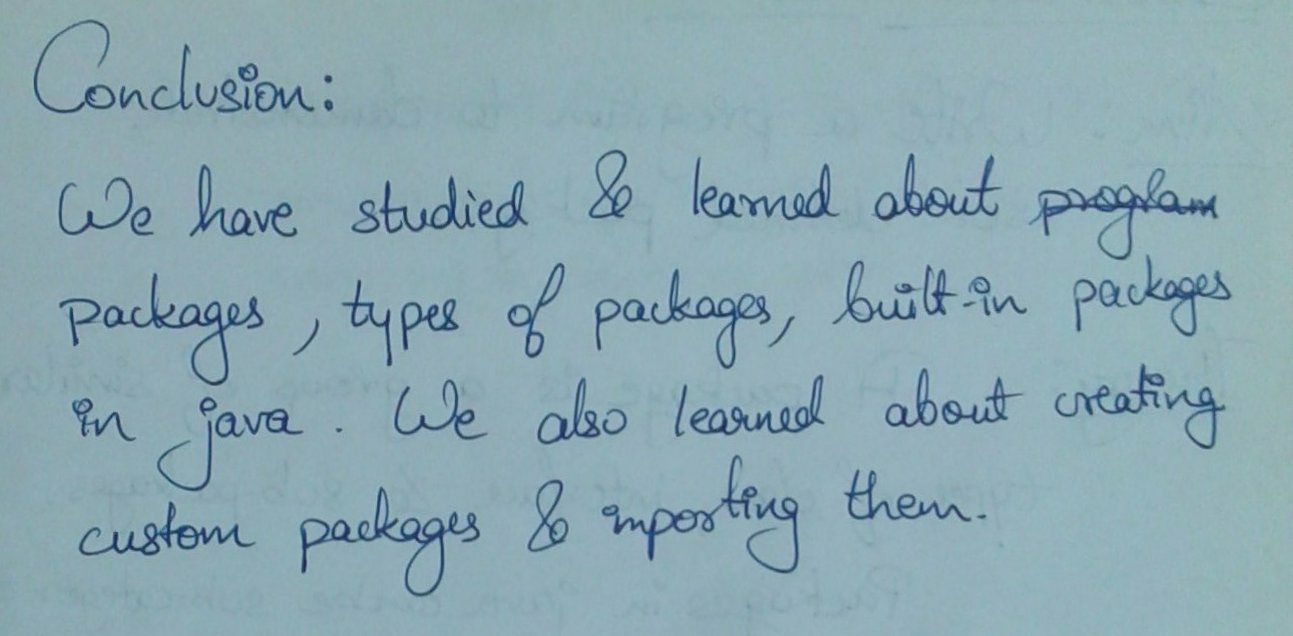 Conclusion:
We have studied & learned about program
packages, types of packages, built-in packages
in java. We also learned about creating
custom packages & importing them.